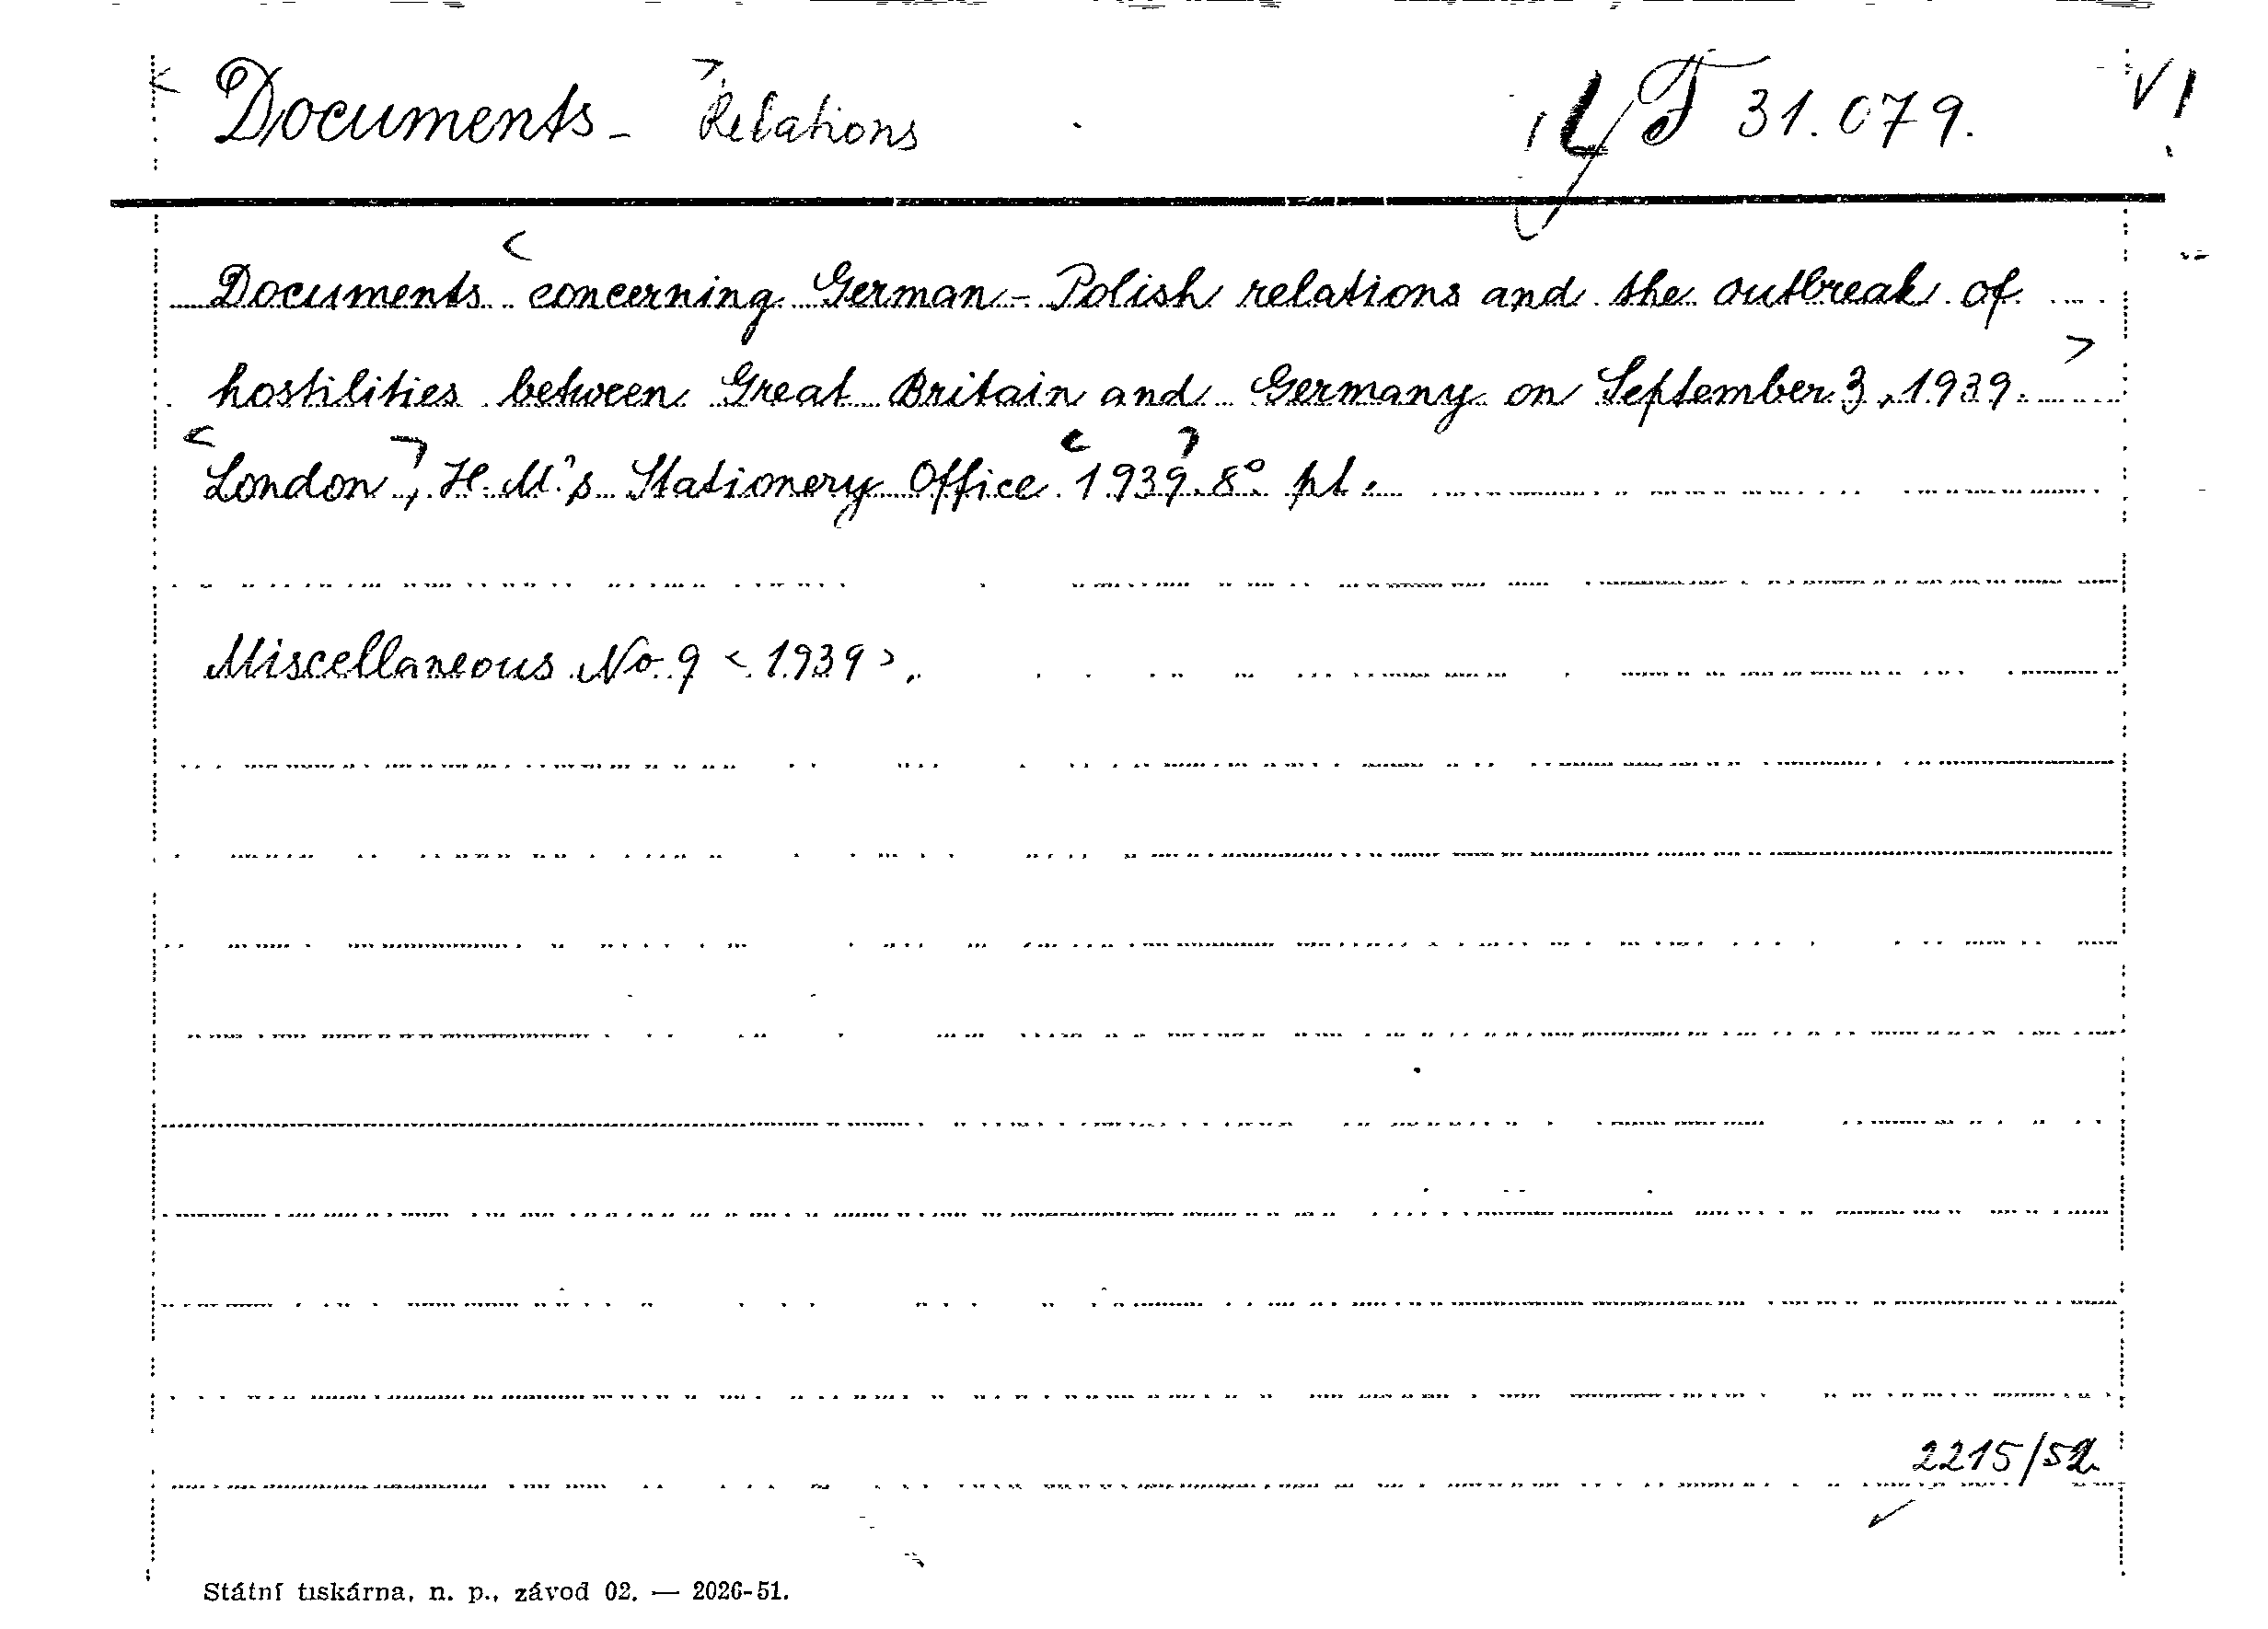 < Documents - Relations > F 31.079. VI
Documents < concerning German-Polish relations and the outbreak of
hostilities between Great Britain and Germany on September 3, 1939. >
< London >, H. M.'s Stationery Office < 1939 >. 8° pl.
Miscellaneous No 9 < 1939 >.
2215/52
Státní tiskárna, n. p., závod 02. — 2026-51.